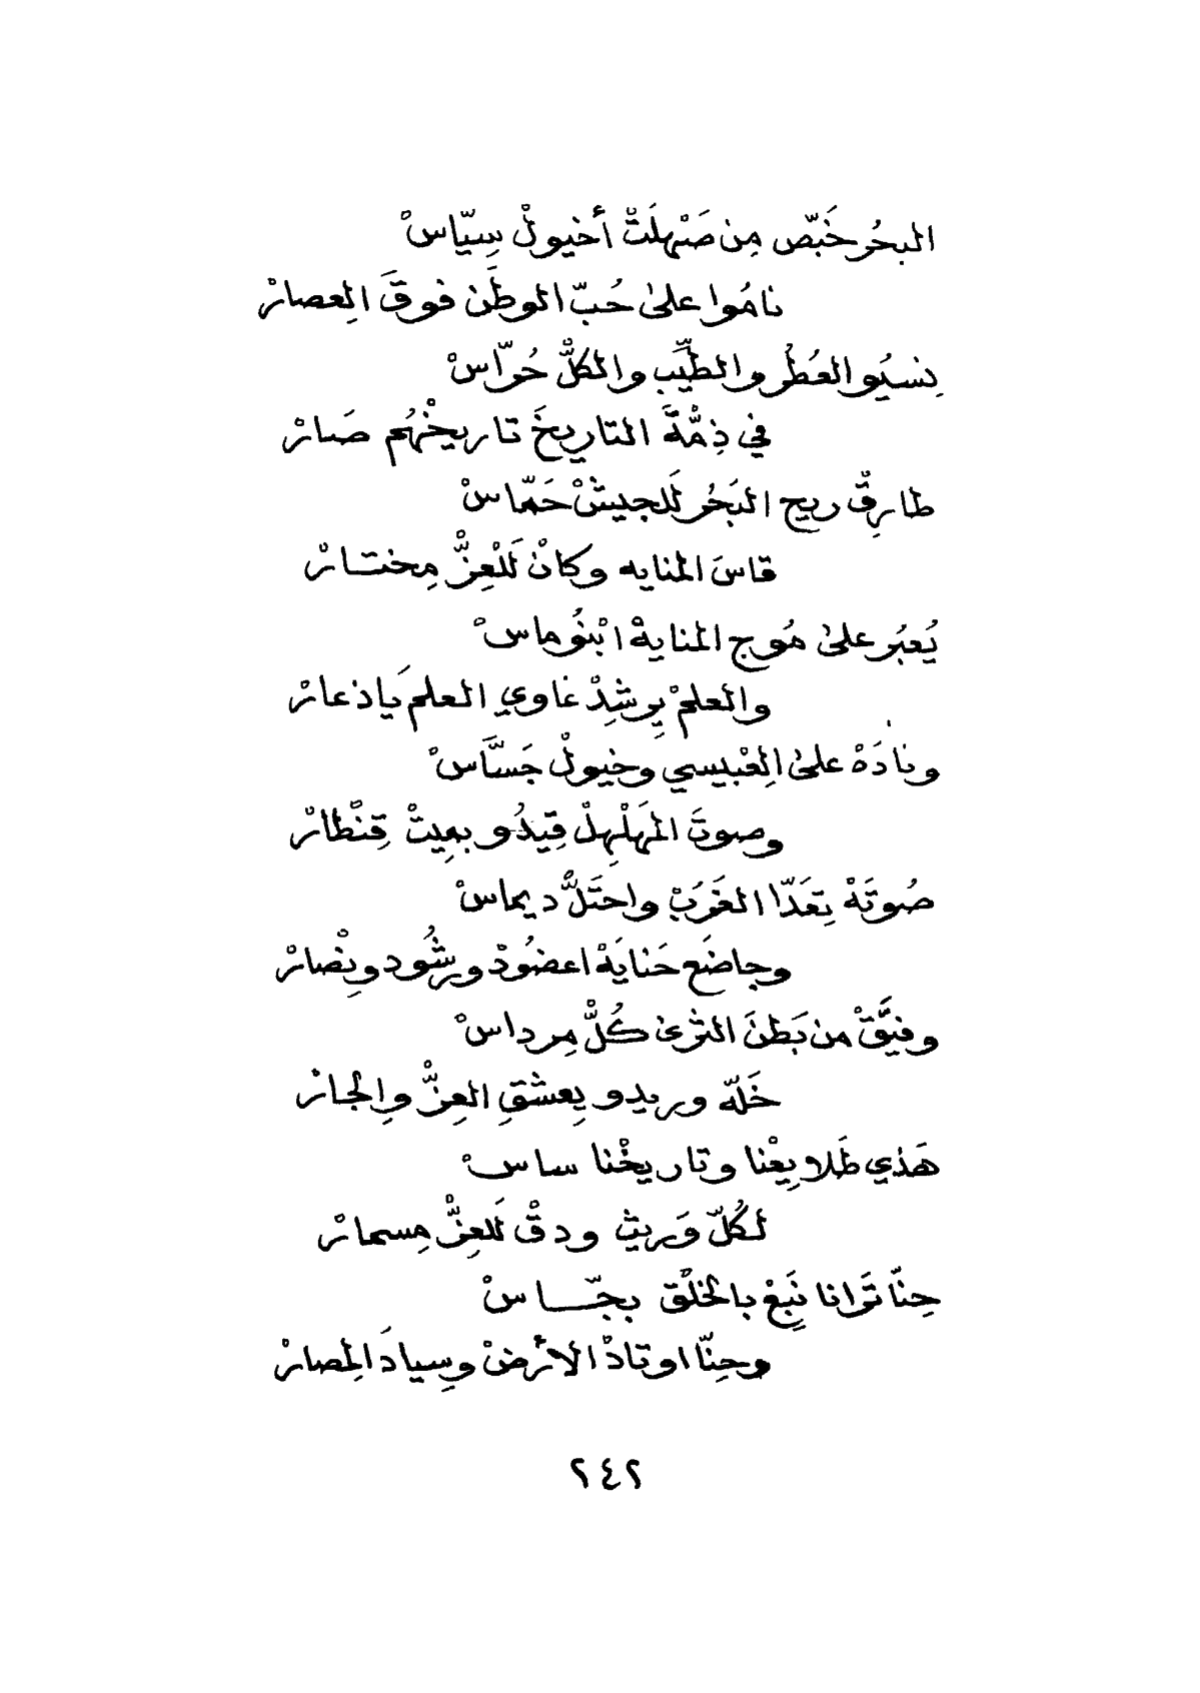 البحُر خَبّص مِن صَهلَتْ أخيولْ سِيّاسْ
نامُوا على حُبّ الوطَن فوقَ الِعصارْ
نِسيُو العُطْر والطِّيِّب والكلّْ حُرّاسْ
في ذِمّْةَ التاريخَ تاريخْهُم صَارْ
طارقْ ريح البَحُر لَلجيشْ حَمّاسْ
قاسَ المنايه وكانْ لَلْعِزّْ مِختارْ
يُعبُر على مُوج المنايهْ ابْنُوماسْ
والعلمْ يِرشِدْ غاوي العلم يَاذعارْ
ونادَهْ على الِعْبيسي وخيولْ جَسَّاسْ
وصوتَ المَهَلْهِلْ قِيدُو بمِيتْ قِنْطارْ
صُوتَهْ تِعَدّا الغَرَبْ واحتَلّْ ديماسْ
وجاضَع حَنايَهْ اعضُودْ ورشُود ونِْصارْ
وفيَّقْ من بَطنَ الثرى كُلّْ مِرداسْ
خَلّه وريدو يِعشقِ العِزّْ والِجارْ
هَذي طَلايِعْنا وتاريخْنا ساسْ
لكُلّ وَريث ودقْ لَلعِزّْ مِسمارْ
حِنّا تَرانا نَبِعْ بالخلْق بجّاسْ
وحِنّا اوتادْ الأرضْ وسِيادَ الِمصارْ
٢٤٢